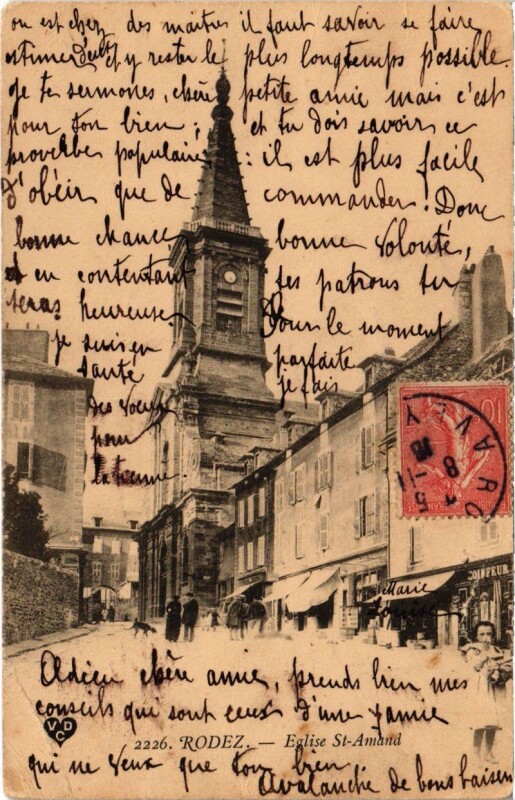 on est chez des maîtres il faut savoir se faire
estimer et y rester le plus longtemps possible.
Je te sermones, chère petite amie mais c'est
pour ton bien; et tu dois savoir ce
proverbe populaire: il est plus facile
d'obéir que de commander. Donc
bonne chance, bonne volonté,
en contentant tes patrons tu
seras heureuse. Pour le moment
je suis en parfaite
santé je fais
des voeux
pour
la tienne.
10
AVEY
5-11
COIFFEUR
Marie
Louise
Adieu chère amie, prends bien mes
conseils qui sont ceux d'une Mamie
VDC
2226. RODEZ. — Eglise St-Amand
qui ne veux que ton bien
Avalanche de bons baisers